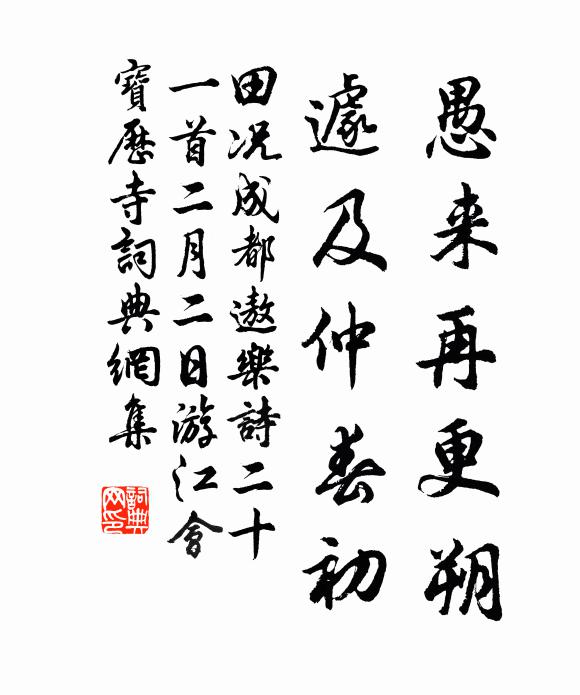 愚来再更朔
遽及仲春初
田况成都遨樂詩二十
一首二月二日游江會
寶歷寺詞典網集
詞典网印